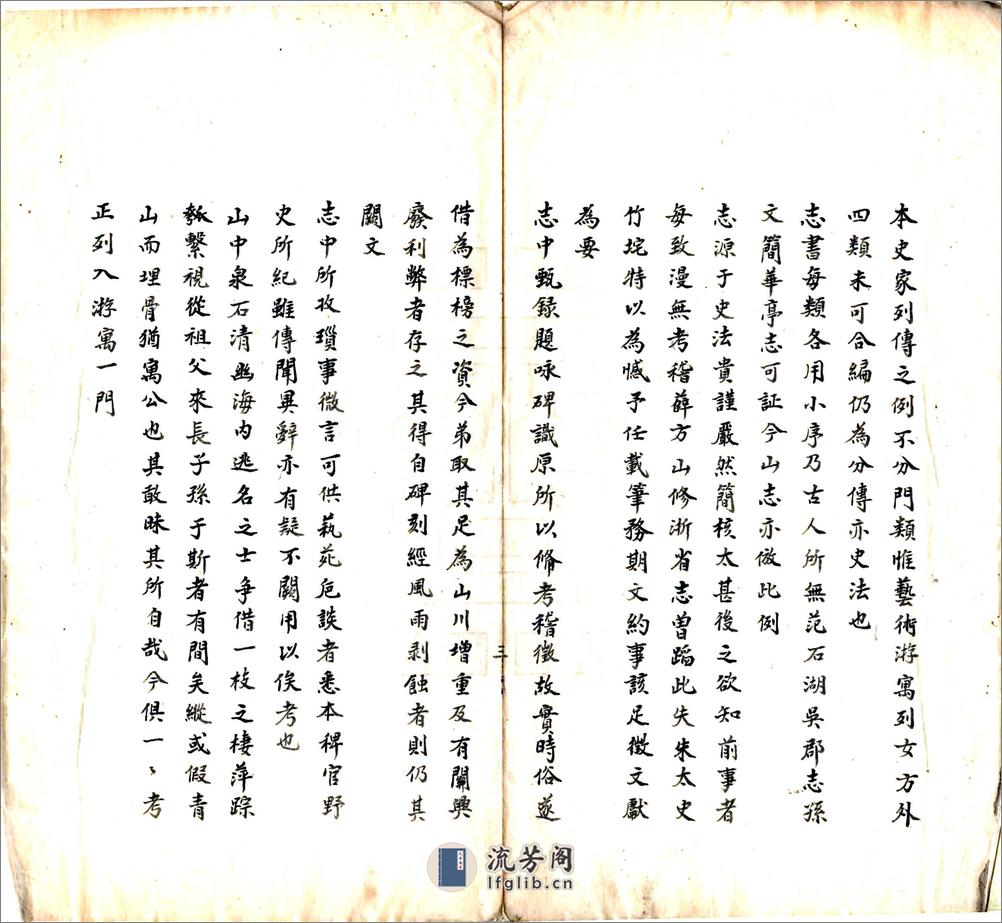 本史家列傳之例不分門類惟藝術游寓列女方外
四類未可合編仍為分傳亦史法也
志書每類各用小序乃古人所無范石湖吳郡志孫
文簡華亭志可証今山志亦倣此例
志源于史法貴謹嚴然簡核太甚後之欲知前事者
每致漫無考稽薛方山修浙省志曾蹈此失朱太史
竹垞特以為憾予任載筆務期文約事該足徵文獻
為要
志中甄録題咏碑識原所以脩考稽徵故實時俗遂
三
借為標榜之資今苐取其足為山川增重及有關興
廢利弊者存之其得自碑刻經風雨剥蝕者則仍其
闕文
志中所攷瑣事微言可供蓺苑卮談者悉本稗官野
史所紀雖傳聞異辭亦有疑不闕用以俟考也
山中泉石清幽海内逃名之士争借一枝之棲萍踪
匏繫視從祖父來長子孫于斯者有間矣縱或假青
山而埋骨猶寓公也其敢昧其所自哉今俱一〻考
正列入游寓一門
流芳阁
lfglib.cn